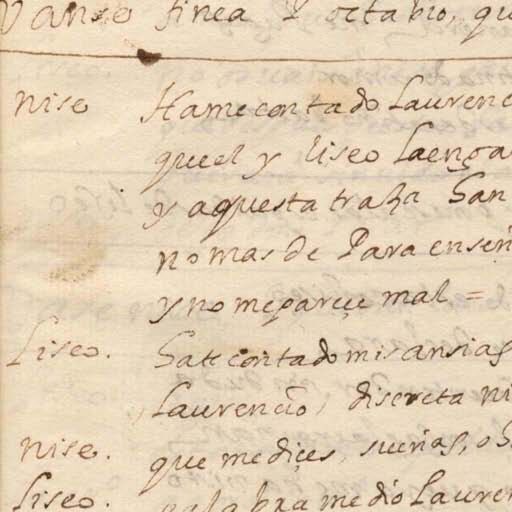 Vanse finea Y octabio, qu
nise Hame contado Laurenc
queel y liseo Laenga
y aquesta traza San
no mas de Para enseñ
y no meparece mal =
Liseo. Sate contado mis ansias
Laurencio, discreta ni
nise. que me dices, sueñas, o S
Liseo. palabra me dio Lauren